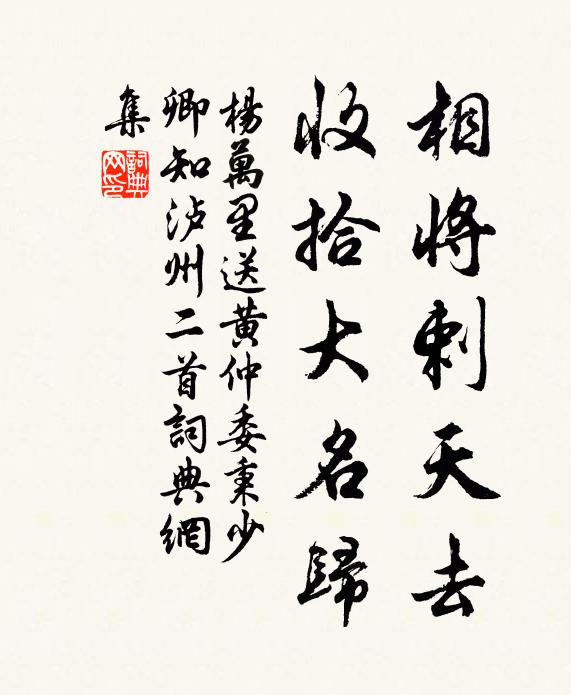 相將刺天去
收拾大名歸
楊萬里送黄仲委秉少
卿知泸州二首詞典網
集
詞典
网印